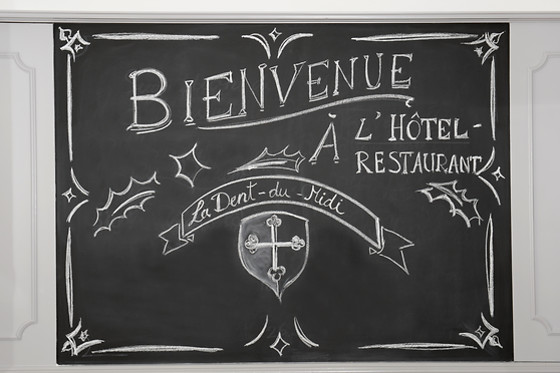 BIENVENUE
À L'HÔTEL-
RESTAURANT
La Dent-du-Midi